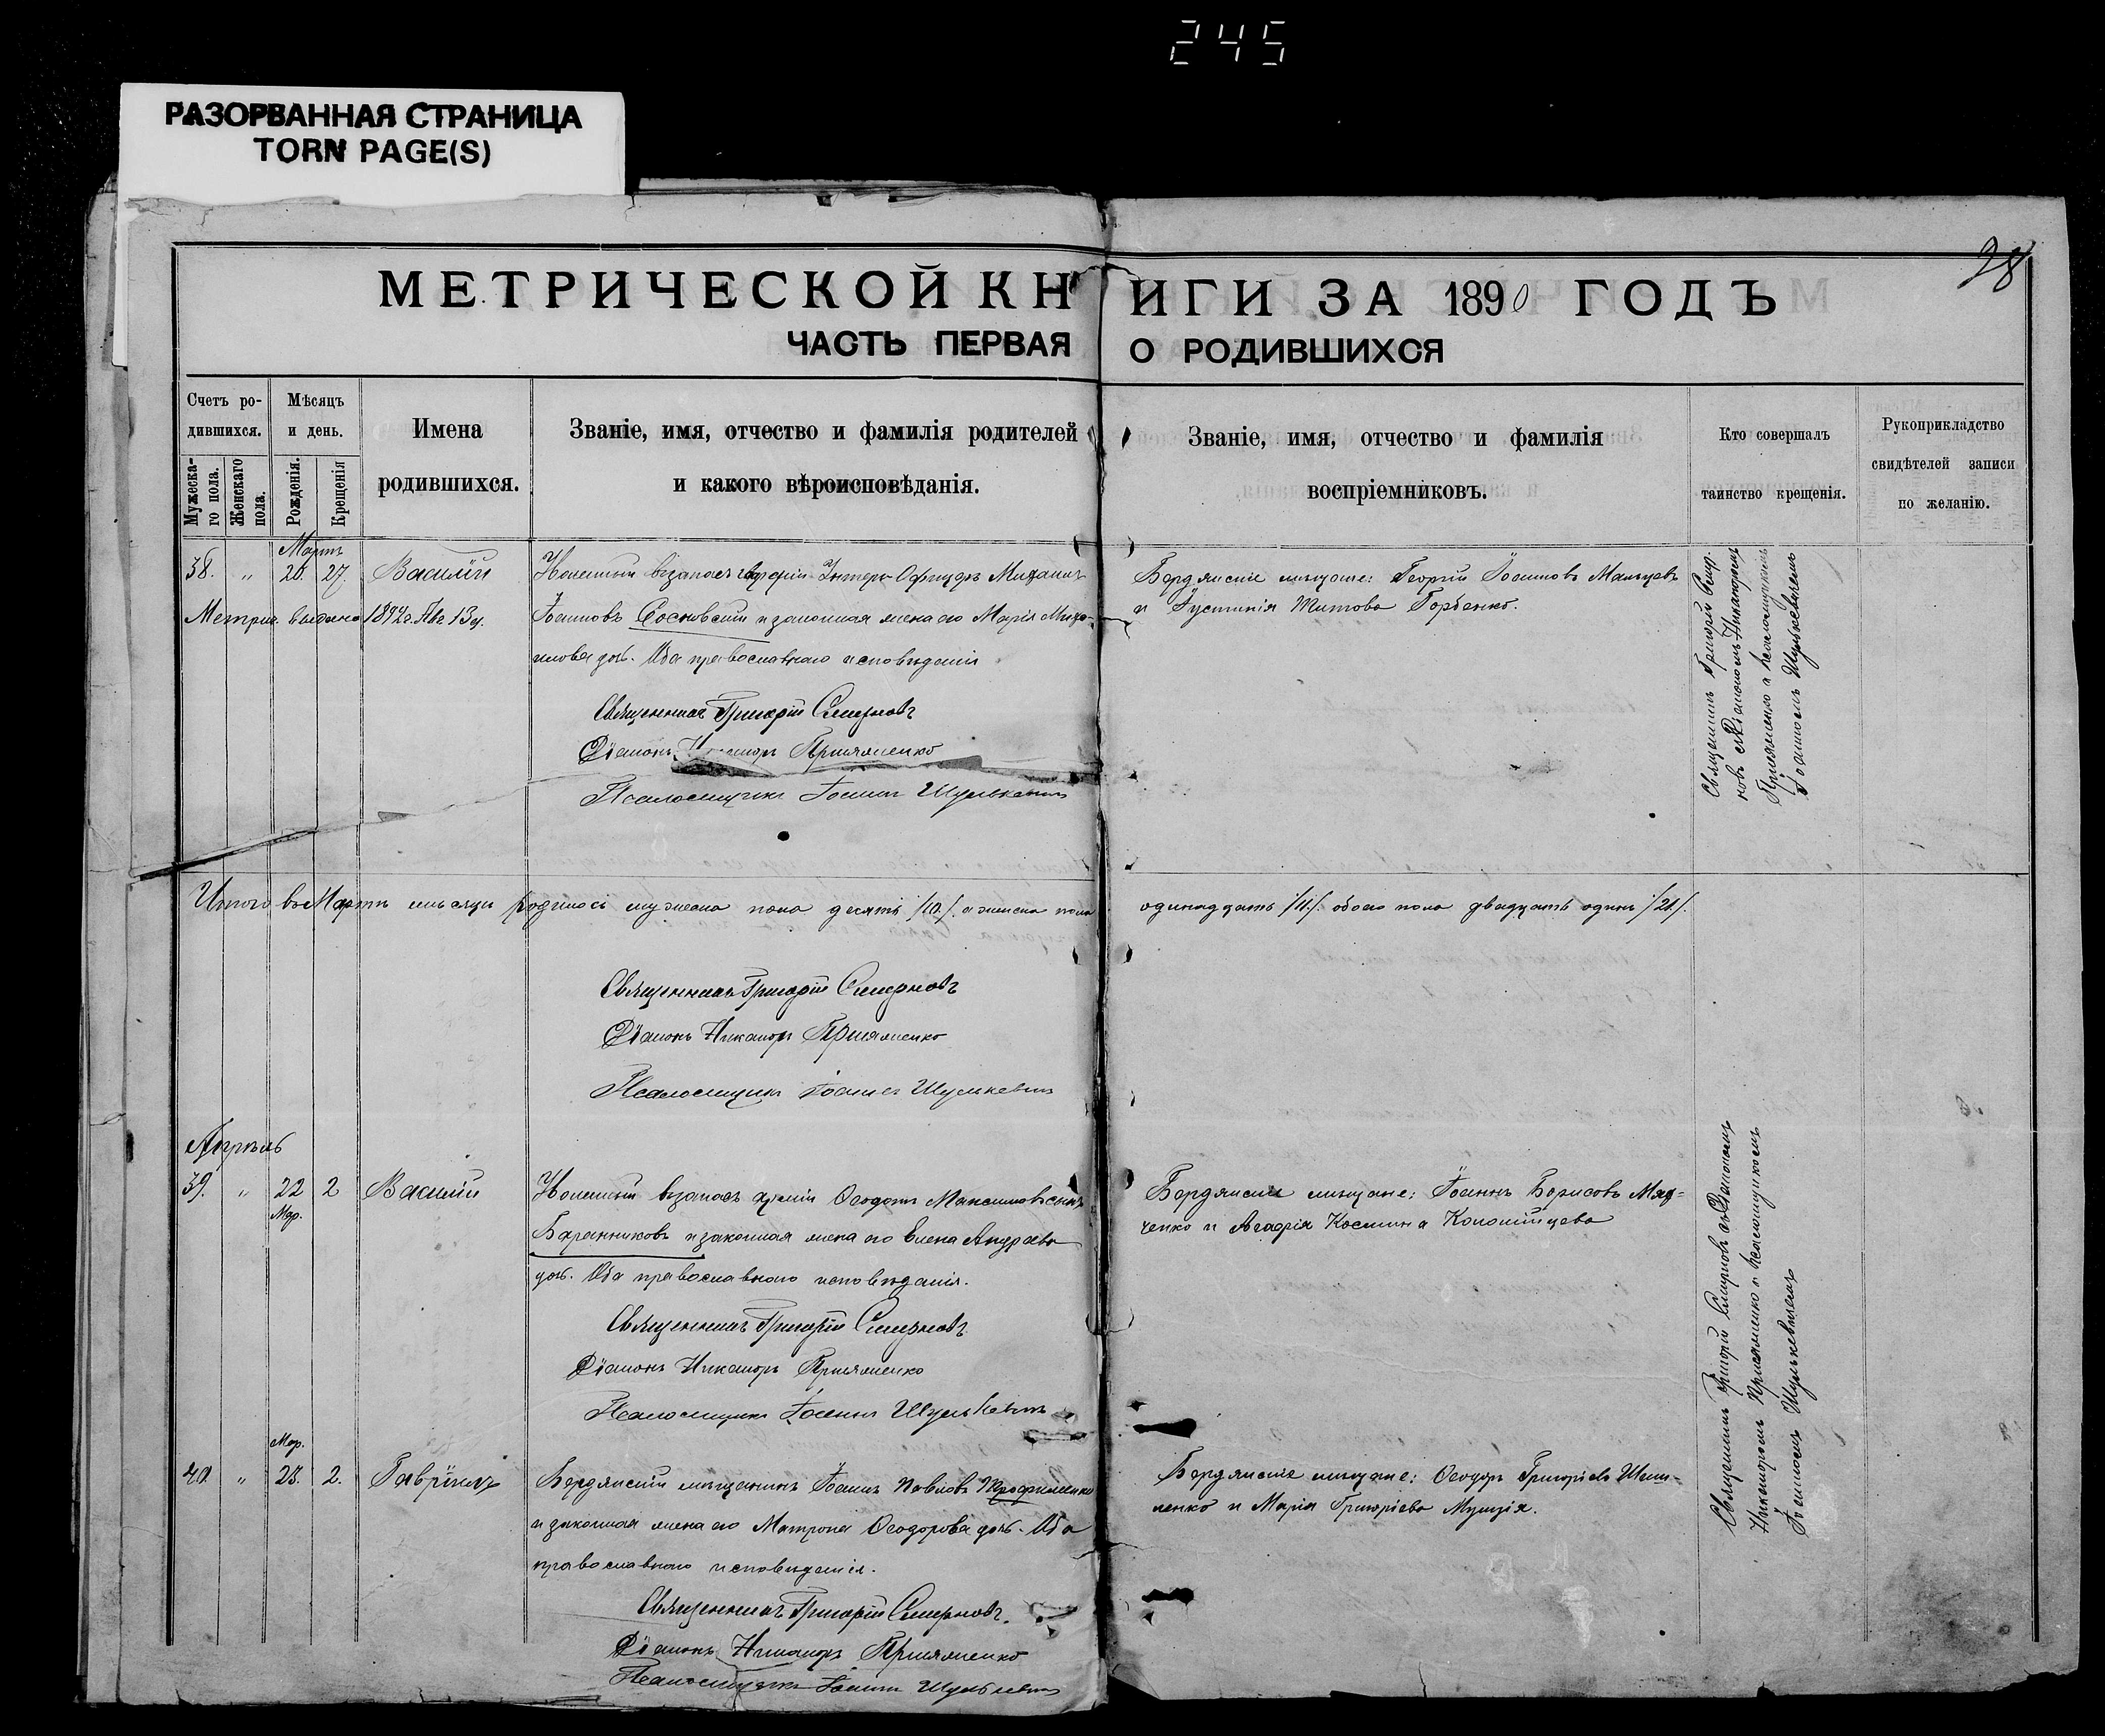 245
РАЗОРВАННАЯ СТРАНИЦА
TORN PAGE(S)
38
МЕТРИЧЕСКОЙ КНИГИ ЗА 1890 ГОДЪ
ЧАСТЬ ПЕРВАЯ О РОДИВШИХСЯ
Счетъ ро-
дившихся.
Мужеска-
го пола.
Женскаго
пола.
Мѣсяцъ
и день.
Рожденія.
Крещенія
Имена
родившихся.
Званіе, имя, отчество и фамилія родителей
и какого вѣроисповѣданія.
Званіе, имя, отчество и фамилія
воспріемниковъ.
Кто совершалъ
таинство крещенія.
Рукоприкладство
свидѣтелей записи
по желанію.
Мартъ
38. " 20. 27. Василій
Унтеръ-Офицеръ Михаилъ
Іоанновъ Сосновскій и законная жена его Марія Михаи-
лова дочь. Оба православнаго исповѣданія
Метрич. выдана 1892г. Авг. 13 д.
Священникъ Григорій Смирновъ
Діаконъ Никаноръ Прияженко
Псаломщикъ Іоаннъ Шулькевичъ
Бердянскіе мѣщане: Георгій Іоанновъ Мальцевъ
и Іустинія Титова Горбенко.
Священникъ Григорій Смир-
новъ съ Діакономъ Никаноромъ
Прияженко и псаломщикомъ
Іоанномъ Шулькевичемъ
Итого въ Мартѣ мѣсяцѣ родилось мужеска пола десять /10/. а женска пола одинадцать /11/. обоего пола двадцать одинъ /21/.
Священникъ Григорій Смирновъ
Діаконъ Никаноръ Прияженко
Псаломщикъ Іоаннъ Шулькевичъ
Апрѣль
39. " 22 2 Василій
Мар.
Ѳеодотъ Максимовъ сынъ
Баранниковъ и законная жена его Елена Андреева
дочь. Оба православнаго исповѣданія.
Священникъ Григорій Смирновъ
Діаконъ Никаноръ Прияженко
Псаломщикъ Іоаннъ Шулькевичъ
Бердянскіе мѣщане: Іоаннъ Борисовъ
ченко и Агафія Космина Коломійцева
Священникъ Григорій Смирновъ съ Діакономъ
Никаноромъ Прияженко и псаломщикомъ
Іоанномъ Шулькевичемъ
Мар.
40 " 23. 2. Гавріилъ
Бердянскій мѣщанинъ Іоаннъ Павловъ Трофименко
и законная жена его Матрона Ѳеодорова дочь. Оба
православнаго исповѣданія.
Священникъ Григорій Смирновъ.
Діаконъ Никаноръ Прияженко
Псаломщикъ Іоаннъ Шулькевичъ
Бердянскіе мѣщане: Ѳеодоръ Григорьевъ
ленко и Марія Григоріева